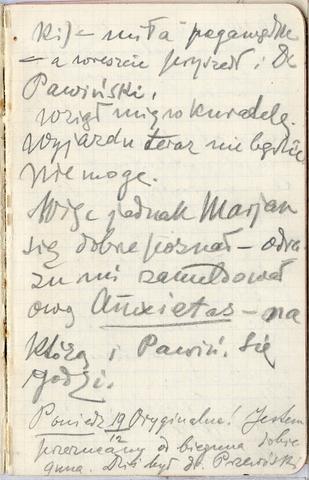 ki) – miła pogawędka
– a wreszcie przyszedł i Dr
Pawiński.
wziął mię w kuratelę.
Wyjazdu teraz nie będzie
Nie mogę.
Więc jednak Marjan
się dobrze poznał – odra
zu mi zameldował
ową Anxietas – na
którą i Pawiń. się
godzi.
Poniedz 19/12 Oryginalne! Jestem
przerzucany od bieguna dobie
guna. Dziś był dr. Przewóski